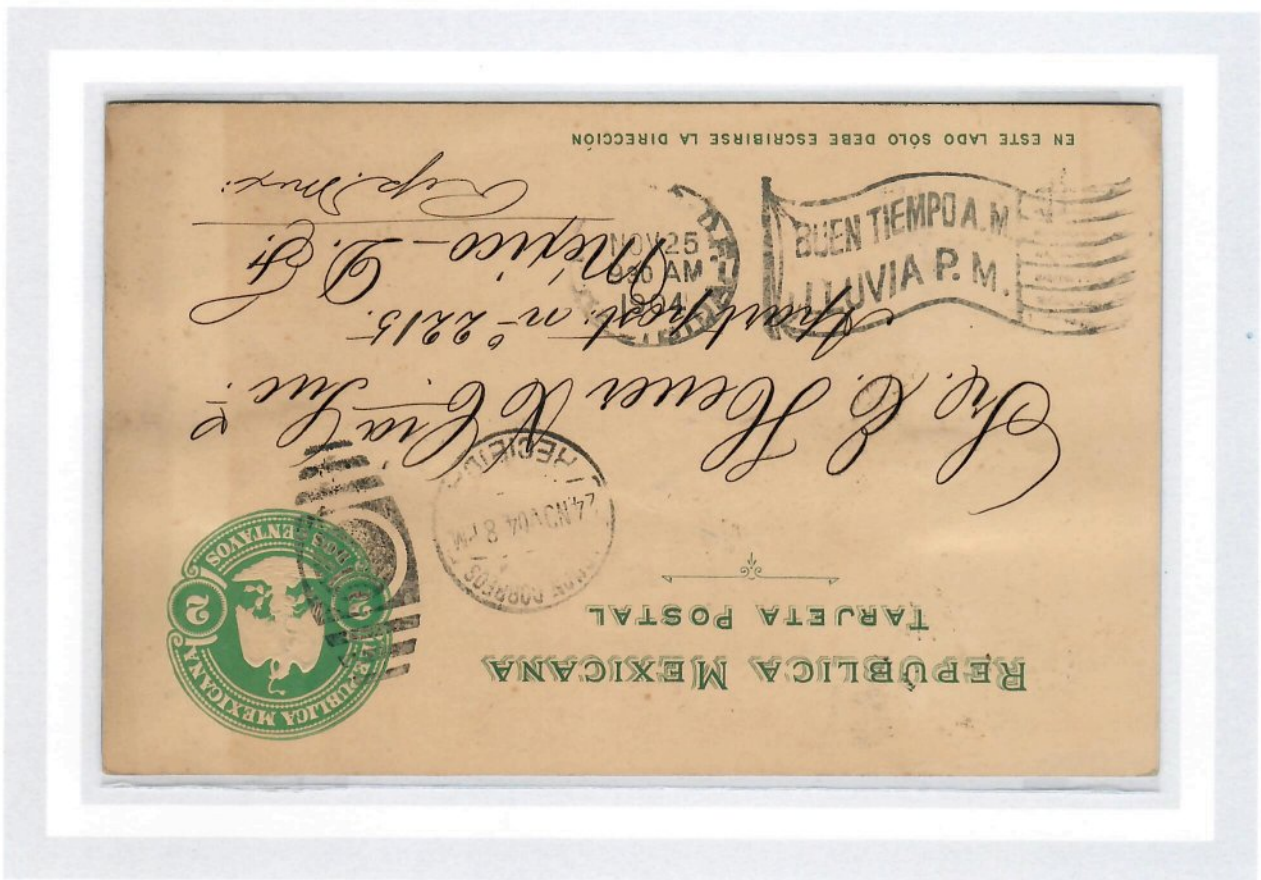 REPÚBLICA MEXICANA
TARJETA POSTAL
REPÚBLICA MEXICANA
2 2
DOS CENTAVOS
CORREOS
24 NOV 04 8 PM
RECIBIDO
Sre. C. Heuer & Cia. Suc.
Apart. post. nº 2215.
México - D. F.
Rep. Mex.
D.F.
NOV 25
9 30 AM
1904
BUEN TIEMPO A.M.
LLUVIA P.M.
EN ESTE LADO SÓLO DEBE ESCRIBIRSE LA DIRECCIÓN